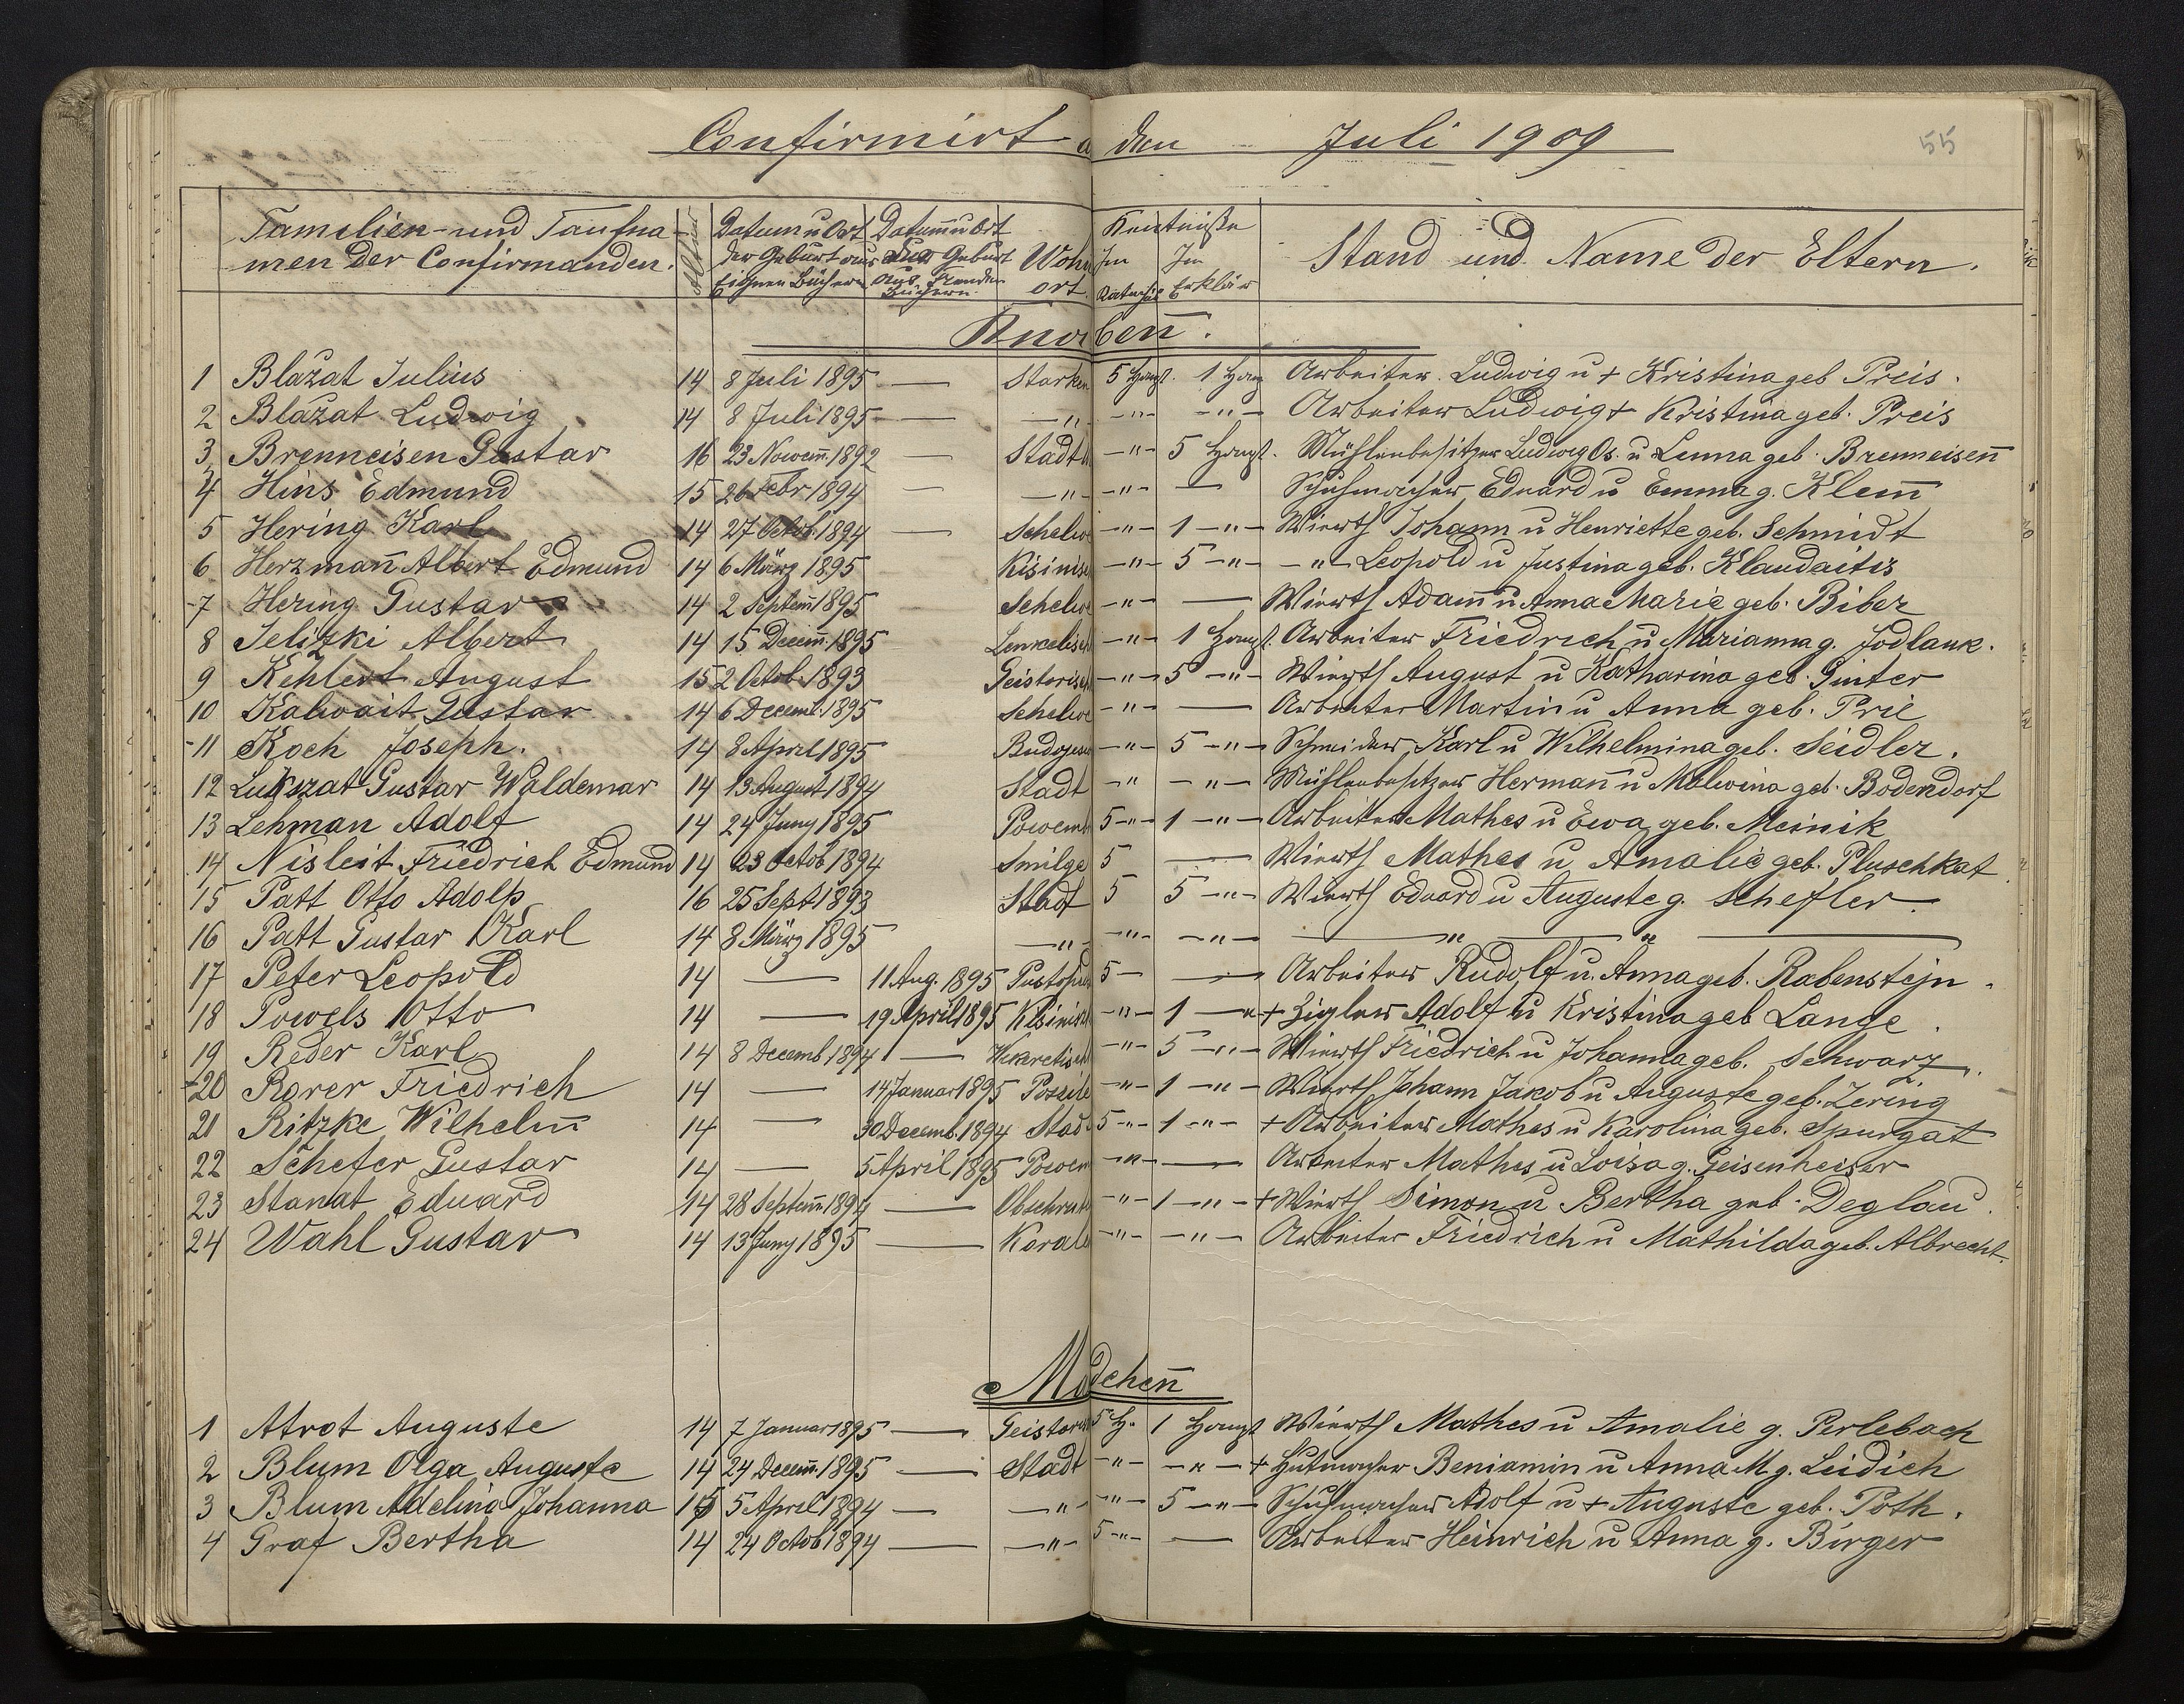 Confirmirt den Juli 1909
55
Familien- und Taufna-
men der Confirmanden.
Datum u Ort
der Geburt aus
Eignen Büchern
Datum u Ort
der Geburt
Aus Fremden
Büchern
Wohn
ort
Kentniße
Im Im
Erklär
Stand und Name der Eltern.
Knaben.
1 Blažat Julius 14 8 Juli 1895 — Starken 5 Haupt. 1 Haup Arbeiter Ludwig u + Kristina geb Preis.
2 Blažat Ludwig 14 8 Juli 1895 — —"— —"— —"— Arbeiter Ludwig + Kristina geb. Preis
3 Brenneisen Gustav 16 23 Novem̄. 1892 — Stadt —"— 5 Haupt. Mühlenbesitzer Ludwig Os. u Lenna geb. Brenneisen̄
4 Hins Edmund 15 26 Febr 1894 — —"— —"— — Schuhmacher Eduard u Emma g. Klem̄
5 Hering Karl 14 27 Octob. 1894 — Schelw —"— 1 —"— Wirth Johann u Henriette geb. Schmidt
6 Herzman̄ Albert Edmund 14 6 März 1895 Kisinisch —"— 5 —"— —"— Leopold u Justina geb. Klaudaitis
7 Hering Gustav 14 2 Septem̄ 1895 Schelw —"— — Wirth Adam̄ u Anna Marie geb. Biber
8 Jelizki Albert 14 15 Decem̄. 1895 Lenkelisch —"— 1 Haupt. Arbeiter Friedrich u Marianna g. Jodlauk.
9 Kehlert August 15 2 Octob. 1893 Geistorisch —"— 5 —"— Wirth August u Katharina geb. Ginter
10 Kalwait Gustav 14 6 Decemb. 1895 Schelw —"— — Arbeiter Martin u Anna geb. Prie
11 Koch Joseph. 14 8 April 1895 Budojesch —"— 5 —"— Schneider Karl u Wilhelmina geb. Seidler.
12 Lukszat Gustav Waldemar 14 13 August 1894 Stadt —" —"— Mühlenbesitzer Herman̄ u Malwina geb. Bodendorf
13 Lehman Adolf 14 24 Juny 1895 Powemb 5 —"— 1 —"— Arbeiter Mathes u Ewa geb. Meinik
14 Nisleit Friedrich Edmund 14 23 Octob 1894 Smilge 5 — Wirth Mathes u Amalie geb. Pluschkat
15 Patt Otto Adolp 16 25 Sept 1893 Stadt 5 5 —"— Wirth Eduard u Auguste g. Schefler.
16 Patt Gustav Karl 14 8 März 1895 —"— —"— —"— —"— "—
17 Peter Leopold 14 — 11 Aug. 1895 Pustope 5 — — Arbeiter Rudolf u. Anna geb. Rabenstejn.
18 Powels Otto 14 — 19 April 1895 Kisinisch —"— 1 —"— + Zigler Adolf u Kristina geb Lange.
19 Reder Karl 14 8 Decemb 1894 — Wekeretisch —"— 5 —"— Wirth Friedrich u Johanna geb. Schwarz.
20 Rorer Friedrich 14 — 14 Januar 1895 Possile —"— 1 —"— Wirth Johann Jakob u Auguste geb. Zering
21 Ritzke Wilhelm̄ 14 — 30 Decemb. 1894 Stadt 5 —"— 1 —"— + Arbeiter Mathes u Karolina geb. Spurgat
22 Schefer Gustav 14 — 5 April 1895 Powem —"— — Arbeiter Mathes u Loisa g. Geisenheiser
23 Stanat Eduard 14 28 Septem̄ 1894 — Obschrut —"— 1 —"— + Wirth Simon u Bertha geb. Deglau.
24 Wahl Gustav 14 13 Juny 1895 — Korale —"— —"— Arbeiter Friedrich u Mathilda geb. Albrecht.
Mädchen̄
1 Atrot Auguste 14 7 Januar 1895 — Geistoris 5 H. 1 Haupt Wirth Mathes u Amalie g. Perlebach
2 Blum Olga Auguste 14 24 Decem̄. 1895 — Stadt —"— —"— + Hutmacher Beniamin u Anna M g. Leidich
3 Blum Adelina Johanna 15 5 April 1894 — —"— —"— 5 —"— Schuhmacher Adolf u + Auguste geb. Poth.
4 Graf Bertha 14 24 Octob 1894 — —"— 5 —"— — Arbeiter Heinrich u Anna g. Birger